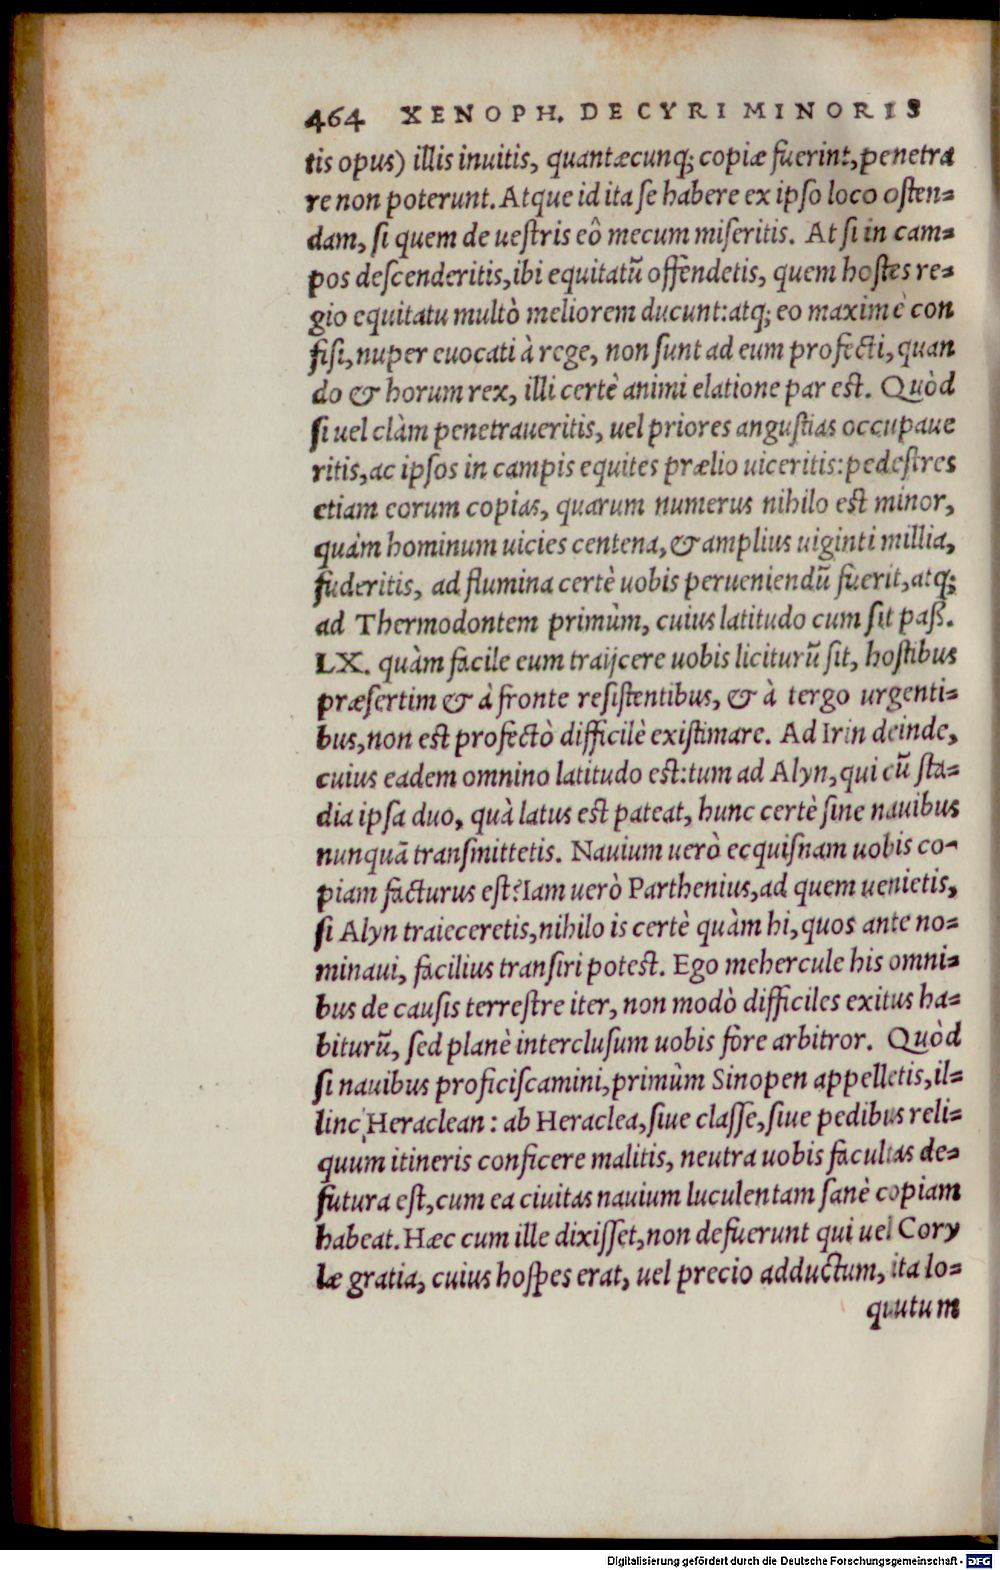 464 XENOPH. DE CYRI MINORIS
tis opus) illis inuitis, quantæcunq; copiæ fuerint, penetra
re non poterunt. Atque id ita se habere ex ipso loco osten=
dam, si quem de uestris eô mecum miseritis. At si in cam=
pos descenderitis, ibi equitatũ offendetis, quem hostes re=
gio equitatu multò meliorem ducunt: atq; eo maximè con
fisi, nuper euocati à rege, non sunt ad eum profecti, quan
do & horum rex, illi certè animi elatione par est. Quòd
si uel clàm penetraueritis, uel priores angustias occupaue
ritis, ac ipsos in campis equites prælio uiceritis: pedestres
etiam eorum copias, quarum numerus nihilo est minor,
quàm hominum uicies centena, & amplius uiginti millia,
fuderitis, ad flumina certè uobis perueniendũ fuerit, atq;
ad Thermodontem primùm, cuius latitudo cum sit paß.
LX. quàm facile eum traijcere uobis liciturũ sit, hostibus
præsertim & à fronte resistentibus, & à tergo urgenti=
bus, non est profectò difficilè existimare. Ad Irin deinde,
cuius eadem omnino latitudo est: tum ad Alyn, qui cũ sta=
dia ipsa duo, quà latus est pateat, hunc certè sine nauibus
nunquã transmittetis. Nauium uerò ecquisnam uobis co=
piam facturus est? Iam uerò Parthenius, ad quem uenietis,
si Alyn traieceretis, nihilo is certè quàm hi, quos ante no=
minaui, facilius transiri potest. Ego mehercule his omni=
bus de causis terrestre iter, non modò difficiles exitus ha=
biturũ, sed planè interclusum uobis fore arbitror. Quòd
si nauibus proficiscamini, primùm Sinopen appelletis, il=
linc Heraclean: ab Heraclea, siue classe, siue pedibus reli=
quum itineris conficere malitis, neutra uobis facultas de=
futura est, cum ea ciuitas nauium luculentam sanè copiam
habeat. Hæc cum ille dixisset, non defuerunt qui uel Cory
læ gratia, cuius hospes erat, uel precio adductum, ita lo=
quutum
Digitalisierung gefördert durch die Deutsche Forschungsgemeinschaft - DFG